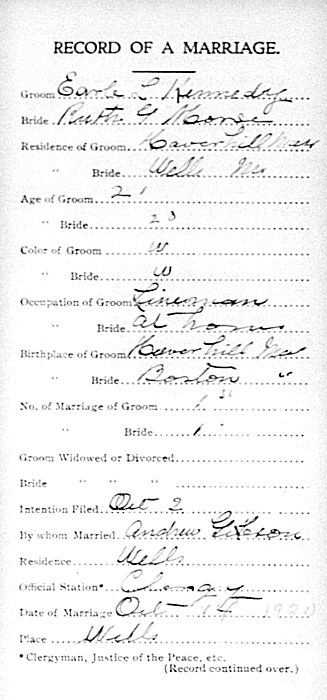 RECORD OF A MARRIAGE.
Groom Earle L Kennedy
Bride Ruth G Morse
Residence of Groom Haverhill Mass
" Bride Wells Me
Age of Groom 21
" Bride 20
Color of Groom W
" Bride W
Occupation of Groom Lineman
" Bride at home
Birthplace of Groom Haverhill Mass
" Bride Boston "
No. of Marriage of Groom 1st
" Bride 1
Groom Widowed or Divorced
Bride " " "
Intention Filed Oct 2
By whom Married Andrew Gibson
Residence Wells
Official Station* Clergy
Date of Marriage Oct 14 1920
Place Wells
*Clergyman, Justice of the Peace, etc.
(Record continued over.)